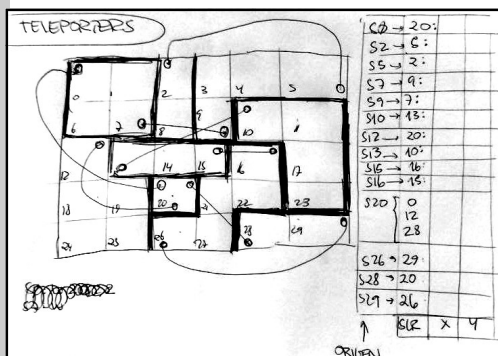 TELEPORTERS
0 1 2 3 4 5
6 7 8 9 10
12 14 15 16 17
18 19 20 21 22 23
24 25 26 27 28 29
S0 → 20:
S2 → 5:
S5 → 2:
S7 → 9:
S9 → 7:
S10 → 13:
S12 → 20:
S13 → 10:
S15 → 16:
S16 → 15:
S20 { 0
12
28
S26 → 29:
S28 → 20
S29 → 26
SLR X Y
ORIGEN